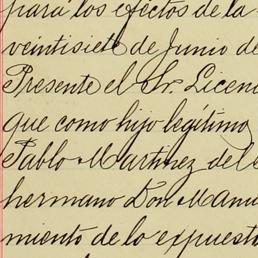 para los efectos de la
veintisiete de Junio de
Presente el Sr. Licen
que como hijo legítimo
Pablo Martinez del
hermano Don Manu
miento de lo expuest